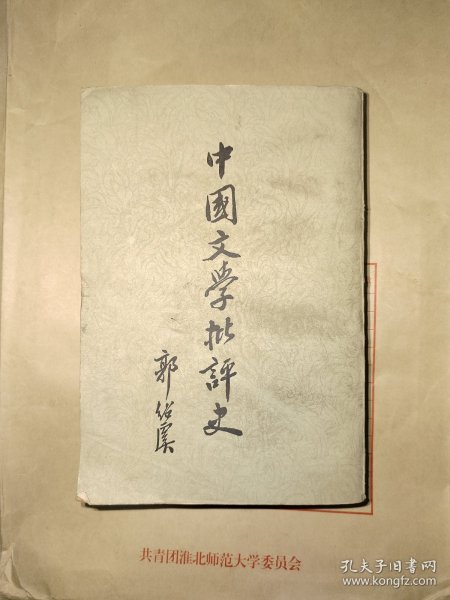 中國文學批評史
郭紹虞
共青团淮北师范大学委员会
孔夫子旧书网
www.kongfz.com